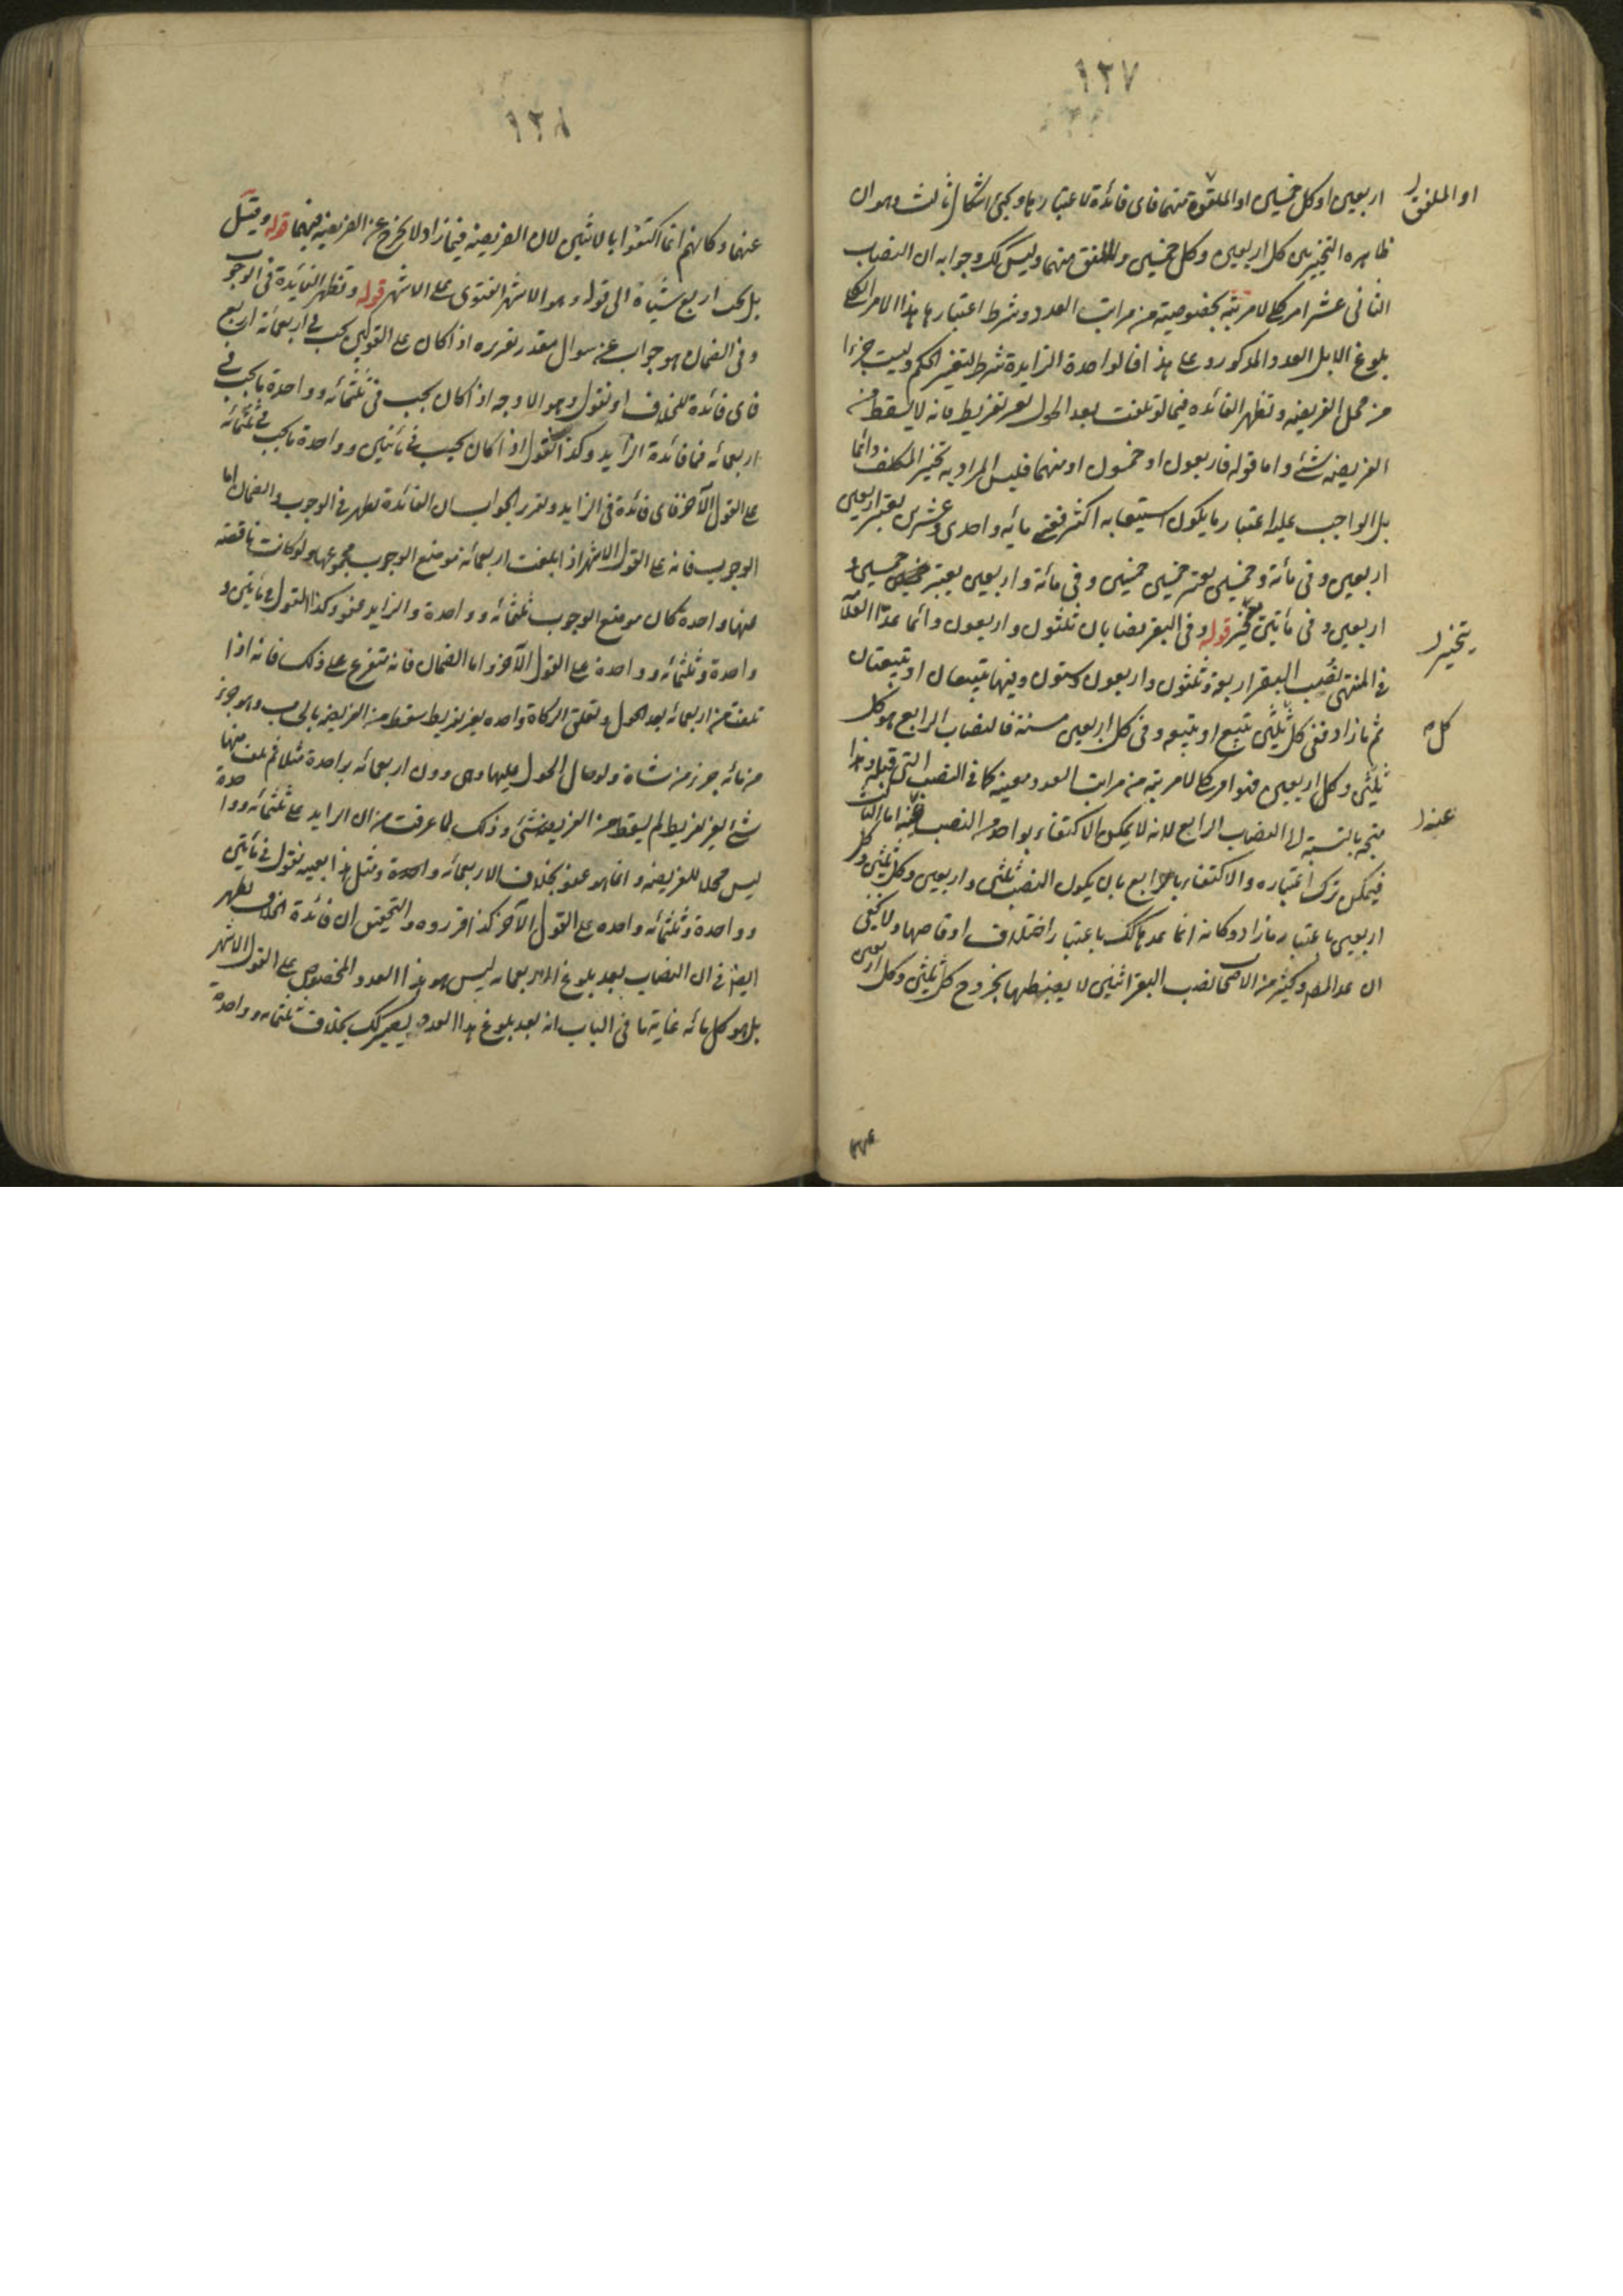 ١٢٧
اربعين او كل خمسين او الملفقة منهما فاى فائدة لاعتبارها ويجئ اشكال ثالث وهو ان
او الملفق
ظاهره التخيير بين كل اربعين وكل خمسين والملفق منهما وليس كك وجوابه ان النصاب
الثانى عشر امر كلى لا مرتبة بخصوصيته من مراتب العدد وشرط اعتبارها هذا الامر الكلى
بلوغ الابل العدد المذكور وعلى هذا فالواحدة الزايدة شرط لتغير الحكم وليست جزءا
من محل الفريضة وتظهر الفائده فيما لو تلفت بعد الحول بغير تفريط فانه لا يسقط من
الفريضة شئ واما قوله فاربعون او خمسون او منهما فليس المراد به تخيير المكلف دائما
بل الواجب عليه اعتبار ما يكون استيعابه اكثر ففى مائه واحدى وعشرين يعتبر اربعين
اربعين وفى مائة وخمسين يعتبر خمسين خمسين وفى مائة واربعين يعتبر خمسين و
اربعين وفى مأتين يتخير قوله وفى البقر نصابان ثلثون واربعون وانما عد العلامة
يتخير
فى المنتهى نصب البقر اربعة ثلثون واربعون وستون وفيها تبيعان او تبيعتان
ثم ما زاد ففى كل ثلثين تبيع او تبيعه وفى كل اربعين مسنة فالنصاب الرابع هو كل
كل
ثلثين وكل اربعين فهو امر كلى لا مرتبة من مراتب العدد معينة كما فى النصب التى قبله وهذا
متجه بالنسبة الى النصاب الرابع لانه لا يمكن الاكتفاء بواحد من النصب عنه اما الثالث
عنه
فيمكن ترك اعتباره والاكتفاء بالرابع بان يكون النصب ثلثين واربعين وكل ثلثين وكل
اربعين باعتبار ما زاد وكانه انما عدها كك باعتبار اختلاف اوقاصها ولا يخفى
ان عد المصـ وكثير من الاصحاب نصب البقر اثنين لا يضبطها بخروج كل ثلثين وكل اربعين
١٢٨
عنها وكانهم انما اكتفوا بالاثنين لان الفريضة فيما زاد لا يخرج عن الفريضة فيهما قوله وقيل
بل يجب اربع شياه الى قوله وهو الاشهر الفتوى على الاشهر قوله وتظهر الفايدة فى الوجوب
وفى الضمان هو جواب عن سوال مقدر تقريره اذا كان على القولين يجب فى اربعمائة اربع
فاى فائدة للخلاف او نقول وهو الاوجه اذا كان يجب فى ثلثمائه وواحدة ما يجب فى
اربعمائه فما فائدة الزايد وكذا نقول اذا كان يجب فى مأتين وواحدة ما يجب فى ثلثمائه
على القول الآخر فاى فائدة فى الزايد وتقرير الجواب ان الفائدة تظهر فى الوجوب والضمان اما
الوجوب فانه على القول الاشهر اذا بلغت اربعمائه موضع الوجوب مجموعها ولو كانت ناقصة
عنها واحدة كان موضع الوجوب ثلثمائه وواحدة والزايد عفو وكذا القول فى مأتين و
واحدة وثلثمائه وواحدة على القول الآخر واما الضمان فانه متفرع على ذلك فانه اذا
تلفت من اربعمائه بعد الحول وتعلق الزكاة واحده بغير تفريط سقط من الفريضة بالحساب وهو جزء
من مائه جزء من شاة ولو حال الحول عليها وهى دون اربعمائه بواحدة مثلا ثم تلف منها
شئ بغير تفريط لم يسقط من الفريضة شئ وذلك لما عرفت من ان الزايد على ثلثمائه وواحدة
ليس محلا للفريضة وانما هو عفو بخلاف الاربعمائه ومثل هذا بعينه نقول فى مأتين
وواحدة وثلثمائه واحده على القول الآخر كذا قرروه والتحقيق ان فائدة الخلاف تظهر
ايضا فى ان النصاب بعد بلوغ الاربعمائه ليس هو هذا العدد المخصوص على القول الاشهر
بل هو كل مائه غاية ما فى الباب انه بعد بلوغ هذا العدد يصير كك بخلاف ثلثمائه وواحدة